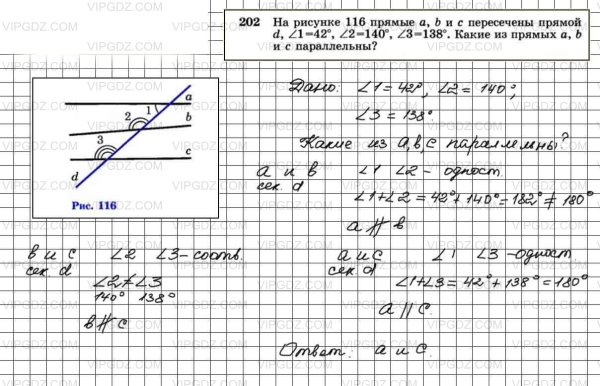 202 На рисунке 116 прямые a, b и c пересечены прямой
d, ∠1=42°, ∠2=140°, ∠3=138°. Какие из прямых a, b
и c параллельны?
Дано: ∠1=42°, ∠2=140°;
∠3=138°
Какие из a, b, c параллельны?
a
1
b
2
3
c
d
Рис. 116
а и в ∠1 ∠2 – одност.
сек. d
∠1+∠2=42°+140°=182°≠180°
a ∦ b
в и с ∠2 ∠3 – соотв.
сек d
∠2≠∠3
140° 138°
в ∦ с
а и с ∠1 ∠3 – одност.
сек. d
∠1+∠3=42°+138°=180°
a // c.
Ответ: а и с.
VIPGDZ.COM